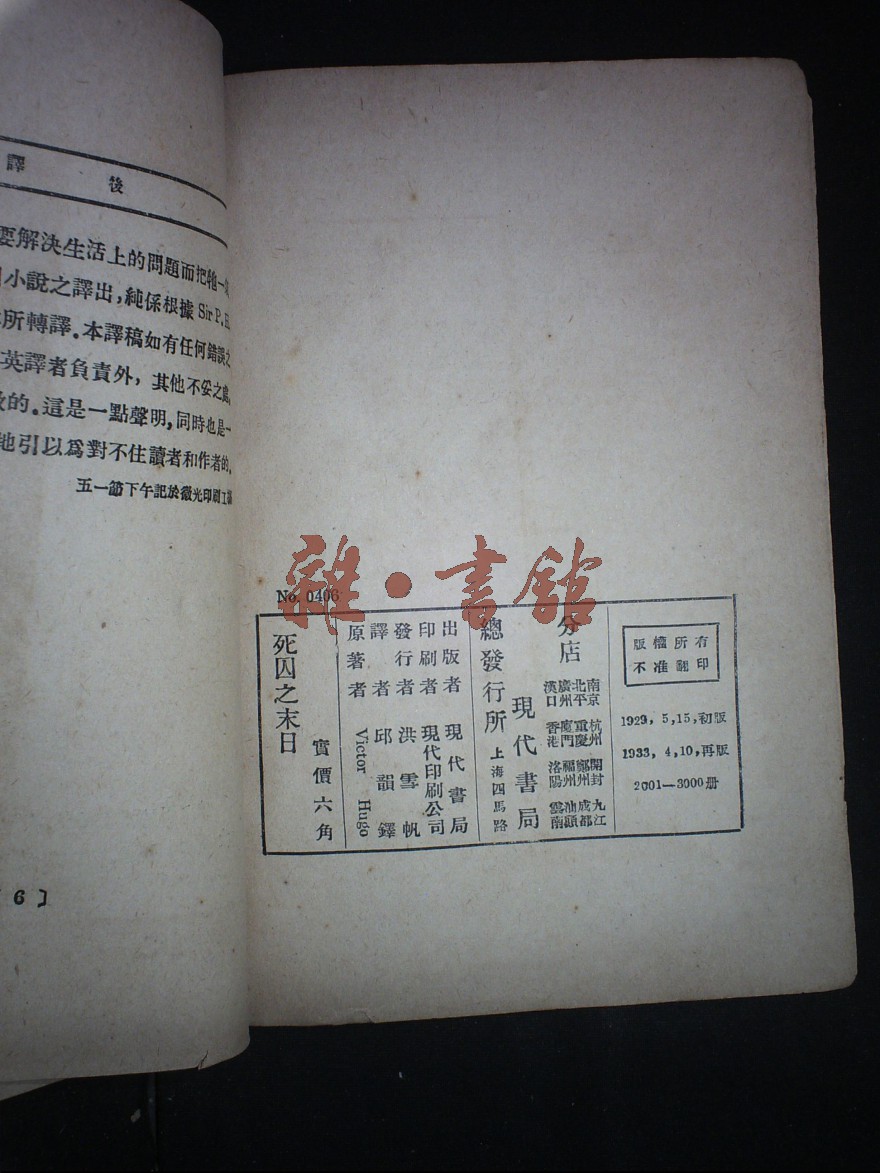 譯 後
要解決生活上的問題而把牠一
小說之譯出，純係根據 Sir P. H.
所轉譯。本譯稿如有任何錯誤之
英譯者負責外，其他不妥之處，
的。這是一點聲明，同時也是一
地引以爲對不住讀者和作者的。
五一節下午記於徽光印刷工
6〕
雜·書館
No. 0406
版權所有
不准翻印
1929, 5, 15, 初版
1933, 4, 10, 再版
2001—3000册
分店
南京 杭州 開封 九江
北平 重慶 鄭州 成都
廣州 廈門 福州 汕頭
漢口 香港 洛陽 雲南
現代書局
總發行所 上海四馬路
出版者 現代書局
印刷者 現代印刷公司
發行者 洪雪帆
譯者 邱韻鐸
原著者 Victor Hugo
實價六角
死囚之末日